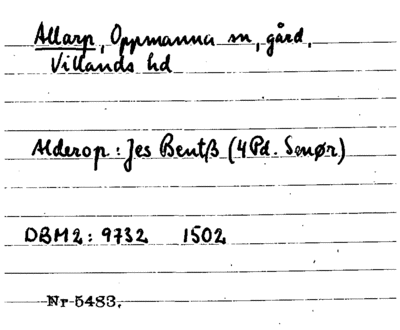 Allarp, Oppmanna sn, gård.
Villands hd
Alderop: Jes Bentß (4 Pd. Smør)
DBM2: 9732 1502
Nr 5483.